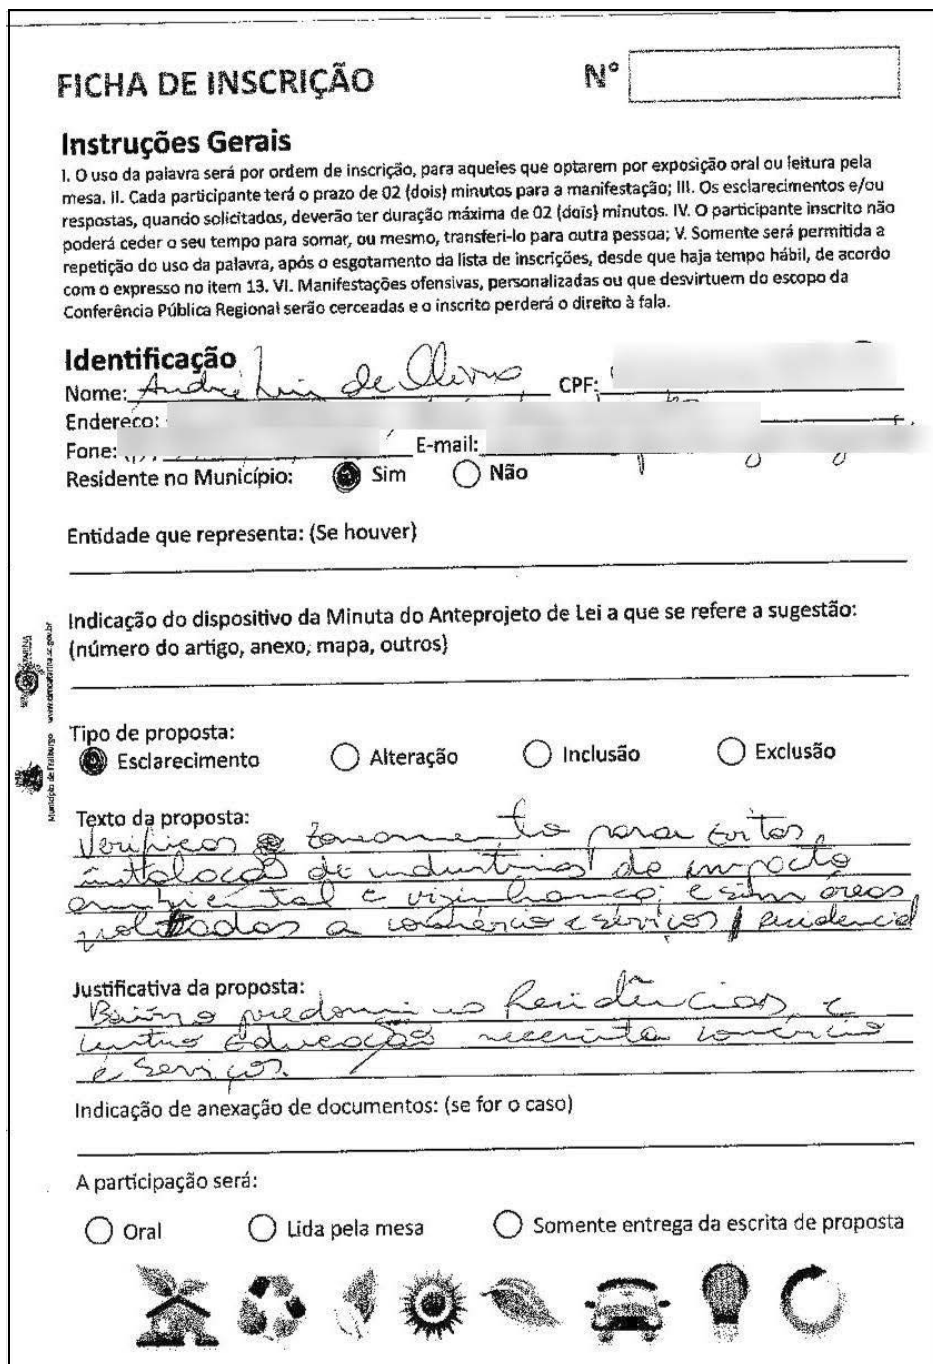 FICHA DE INSCRIÇÃO
N°
Instruções Gerais
I. O uso da palavra será por ordem de inscrição, para aqueles que optarem por exposição oral ou leitura pela
mesa. II. Cada participante terá o prazo de 02 (dois) minutos para a manifestação; III. Os esclarecimentos e/ou
respostas, quando solicitados, deverão ter duração máxima de 02 (dois) minutos. IV. O participante inscrito não
poderá ceder o seu tempo para somar, ou mesmo, transferi-lo para outra pessoa; V. Somente será permitida a
repetição do uso da palavra, após o esgotamento da lista de inscrições, desde que haja tempo hábil, de acordo
com o expresso no item 13. VI. Manifestações ofensivas, personalizadas ou que desvirtuem do escopo da
Conferência Pública Regional serão cerceadas e o inscrito perderá o direito à fala.
Identificação
Nome: André Luis de Oliveira CPF:
Endereço:
Fone: E-mail:
Residente no Município: Sim Não
Entidade que representa: (Se houver)
Indicação do dispositivo da Minuta do Anteprojeto de Lei a que se refere a sugestão:
(número do artigo, anexo, mapa, outros)
Município de Fraiburgo
Tipo de proposta:
Esclarecimento Alteração Inclusão Exclusão
Texto da proposta:
Verificar zoneamento para
instalação de industrias de impacto
ambiental e vizinhança; e sim áreas
voltadas a comércio e serviços / residencial
Justificativa da proposta:
Bairro Residências, e
centro Educação necessita comércio
e serviços.
Indicação de anexação de documentos: (se for o caso)
A participação será:
Oral Lida pela mesa Somente entrega da escrita de proposta